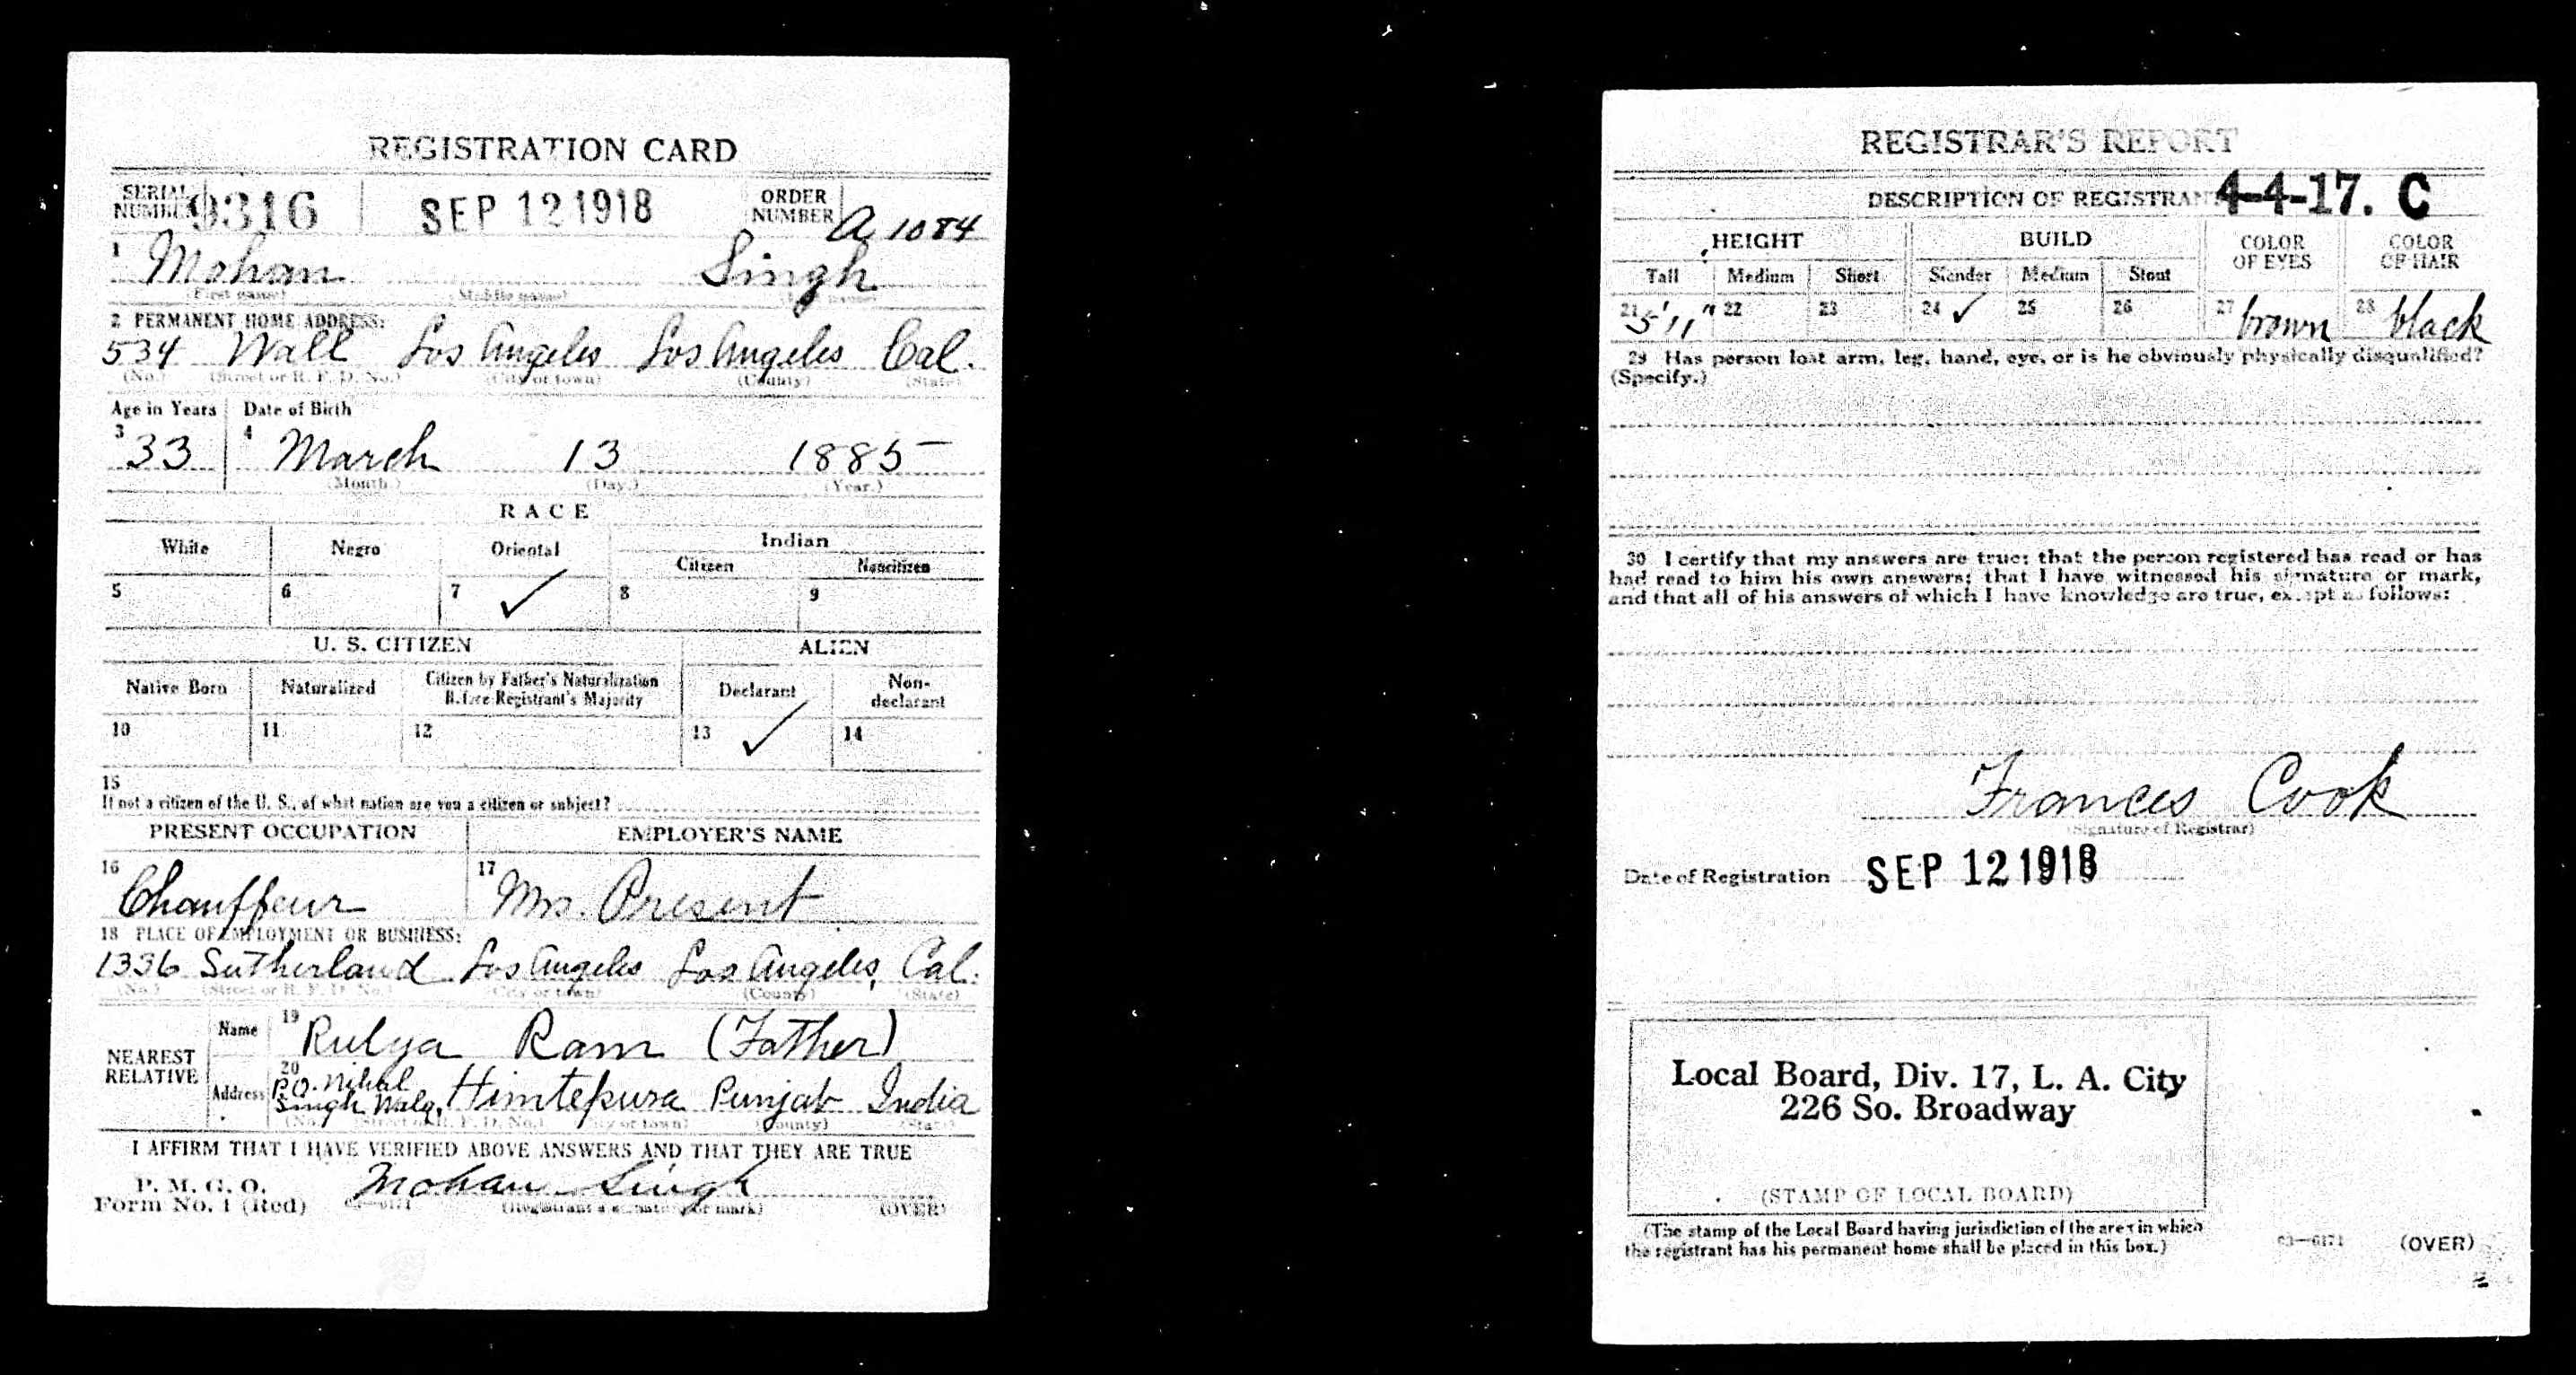 REGISTRATION CARD
SERIAL NUMBER 9316 SEP 12 1918 ORDER NUMBER A 1084
1 Mohan Singh
(First name) (Middle name) (Last name)
2 PERMANENT HOME ADDRESS:
534 Wall Los Angeles Los Angeles Cal.
(No.) (Street or R. F. D. No.) (City or town) (County) (State)
Age in Years Date of Birth
3 33 4 March 13 1885
(Month.) (Day.) (Year.)
RACE
White Negro Oriental Indian
Citizen Noncitizen
5 6 7 ✓ 8 9
U. S. CITIZEN ALIEN
Native Born Naturalized Citizen by Father's Naturalization Before Registrant's Majority Declarant Non-declarant
10 11 12 13 ✓ 14
15
If not a citizen of the U. S., of what nation are you a citizen or subject?
PRESENT OCCUPATION EMPLOYER'S NAME
16 Chauffeur 17 Mrs. Present
18 PLACE OF EMPLOYMENT OR BUSINESS:
1336 Sutherland Los Angeles Los Angeles, Cal.
(No.) (Street or R. F. D. No.) (City or town) (County) (State)
NEAREST RELATIVE
Name 19 Rulya Ram (Father)
Address 20 P.O. Nihal Singh Wala, Himtepura Punjab India
(No.) (Street or R. F. D. No.) (City or town) (County) (State)
I AFFIRM THAT I HAVE VERIFIED ABOVE ANSWERS AND THAT THEY ARE TRUE
P. M. G. O.
Form No. 1 (Red) Mohan Singh
(Registrant's signature or mark) (OVER)
REGISTRAR'S REPORT
4-4-17. C
DESCRIPTION OF REGISTRANT
HEIGHT BUILD COLOR OF EYES COLOR OF HAIR
Tall Medium Short Slender Medium Stout
21 5'11" 22 23 24 ✓ 25 26 27 brown 28 black
29 Has person lost arm, leg, hand, eye, or is he obviously physically disqualified?
(Specify.)
30 I certify that my answers are true; that the person registered has read or has
had read to him his own answers; that I have witnessed his signature or mark,
and that all of his answers of which I have knowledge are true, except as follows:
Frances Cook
(Signature of Registrar)
Date of Registration SEP 12 1918
Local Board, Div. 17, L. A. City
226 So. Broadway
(STAMP OF LOCAL BOARD)
(The stamp of the Local Board having jurisdiction of the area in which
the registrant has his permanent home shall be placed in this box.)
03—6171 (OVER)